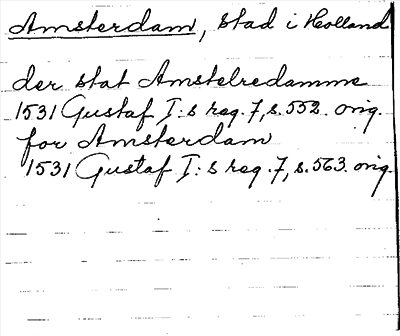 Amsterdam, stad i Holland
der stat Amstelredamme
1531 Gustaf I:s reg. 7, s. 552. orig.
for Amsterdam
1531 Gustaf I:s reg. 7, s. 563. orig.